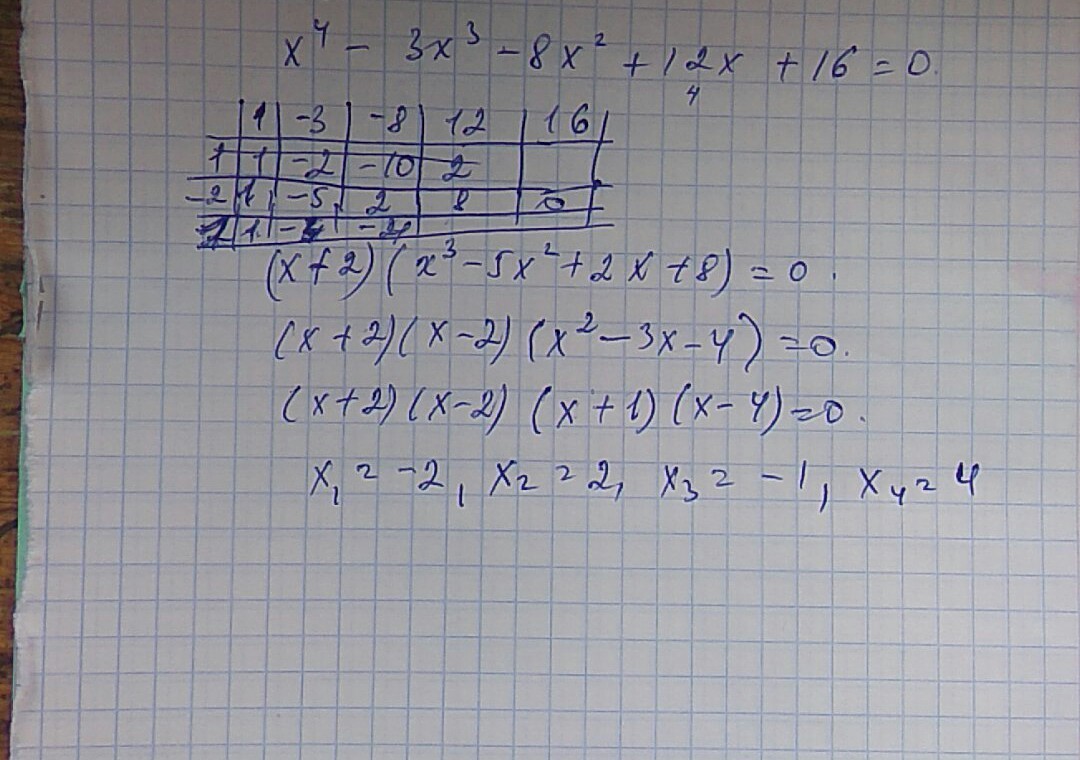 x⁴ - 3x³ - 8x² + 12x + 16 = 0.
4
1 | -3 | -8 | 12 | 16
1 | 1 | -2 | -10 | 2
-2 | 1 | -5 | 2 | 8 | 0
1
(x+2)(x³-5x²+2x+8) = 0.
(x+2)(x-2)(x²-3x-4)=0.
(x+2)(x-2)(x+1)(x-4)=0.
x₁ = -2, x₂ = 2, x₃ = -1, x₄ = 4